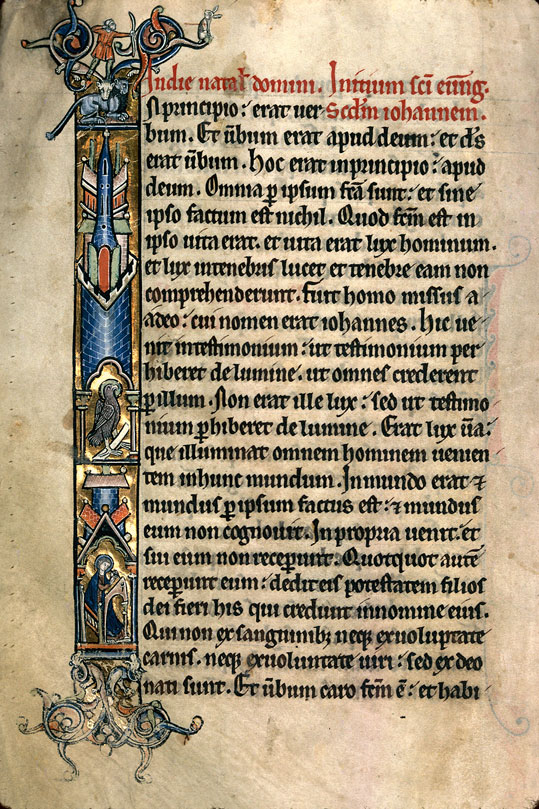 In die natal' domini. Initium sci euūg.
In principio: erat uer Scd'm iohannem.
bum. Et ūbum erat apud deum: et d's
erat ūbum. Hoc erat in principio: apud
deum. Omnia ꝑ ipsum fc̄a sunt: et sine
ipso factum est nichil. Quod fc̄m est in
ipso uita erat. et uita erat lux hominum.
et lux in tenebris lucet et tenebre eam non
comprehenderunt. Fuit homo missus a
a deo: cui nomen erat iohannes. Hic ue
nit in testimonium: ut testimonium per
hiberet de lumine. ut omnes crederent
ꝑ illum. Non erat ille lux: sed ut testimo
nium ꝑhiberet de lumine. Erat lux ūa:
que illuminat omnem hominem uenien
tem in hunc mundum. In mundo erat ⁊
mundus ꝑ ipsum factus est: ⁊ mundus
eum non cognouit. In propria uenit. et
sui eum non receꝑunt. Quotquot autē
receꝑunt eum: dedit eis potestatem filios
dei fieri his qui credunt in nomine eius.
Qui non ex sanguinibꝫ neqꝫ ex uoluptate
carnis. neqꝫ ex uoluntate uiri: sed ex deo
nati sunt. Et ūbum caro fc̄m ē: et habi